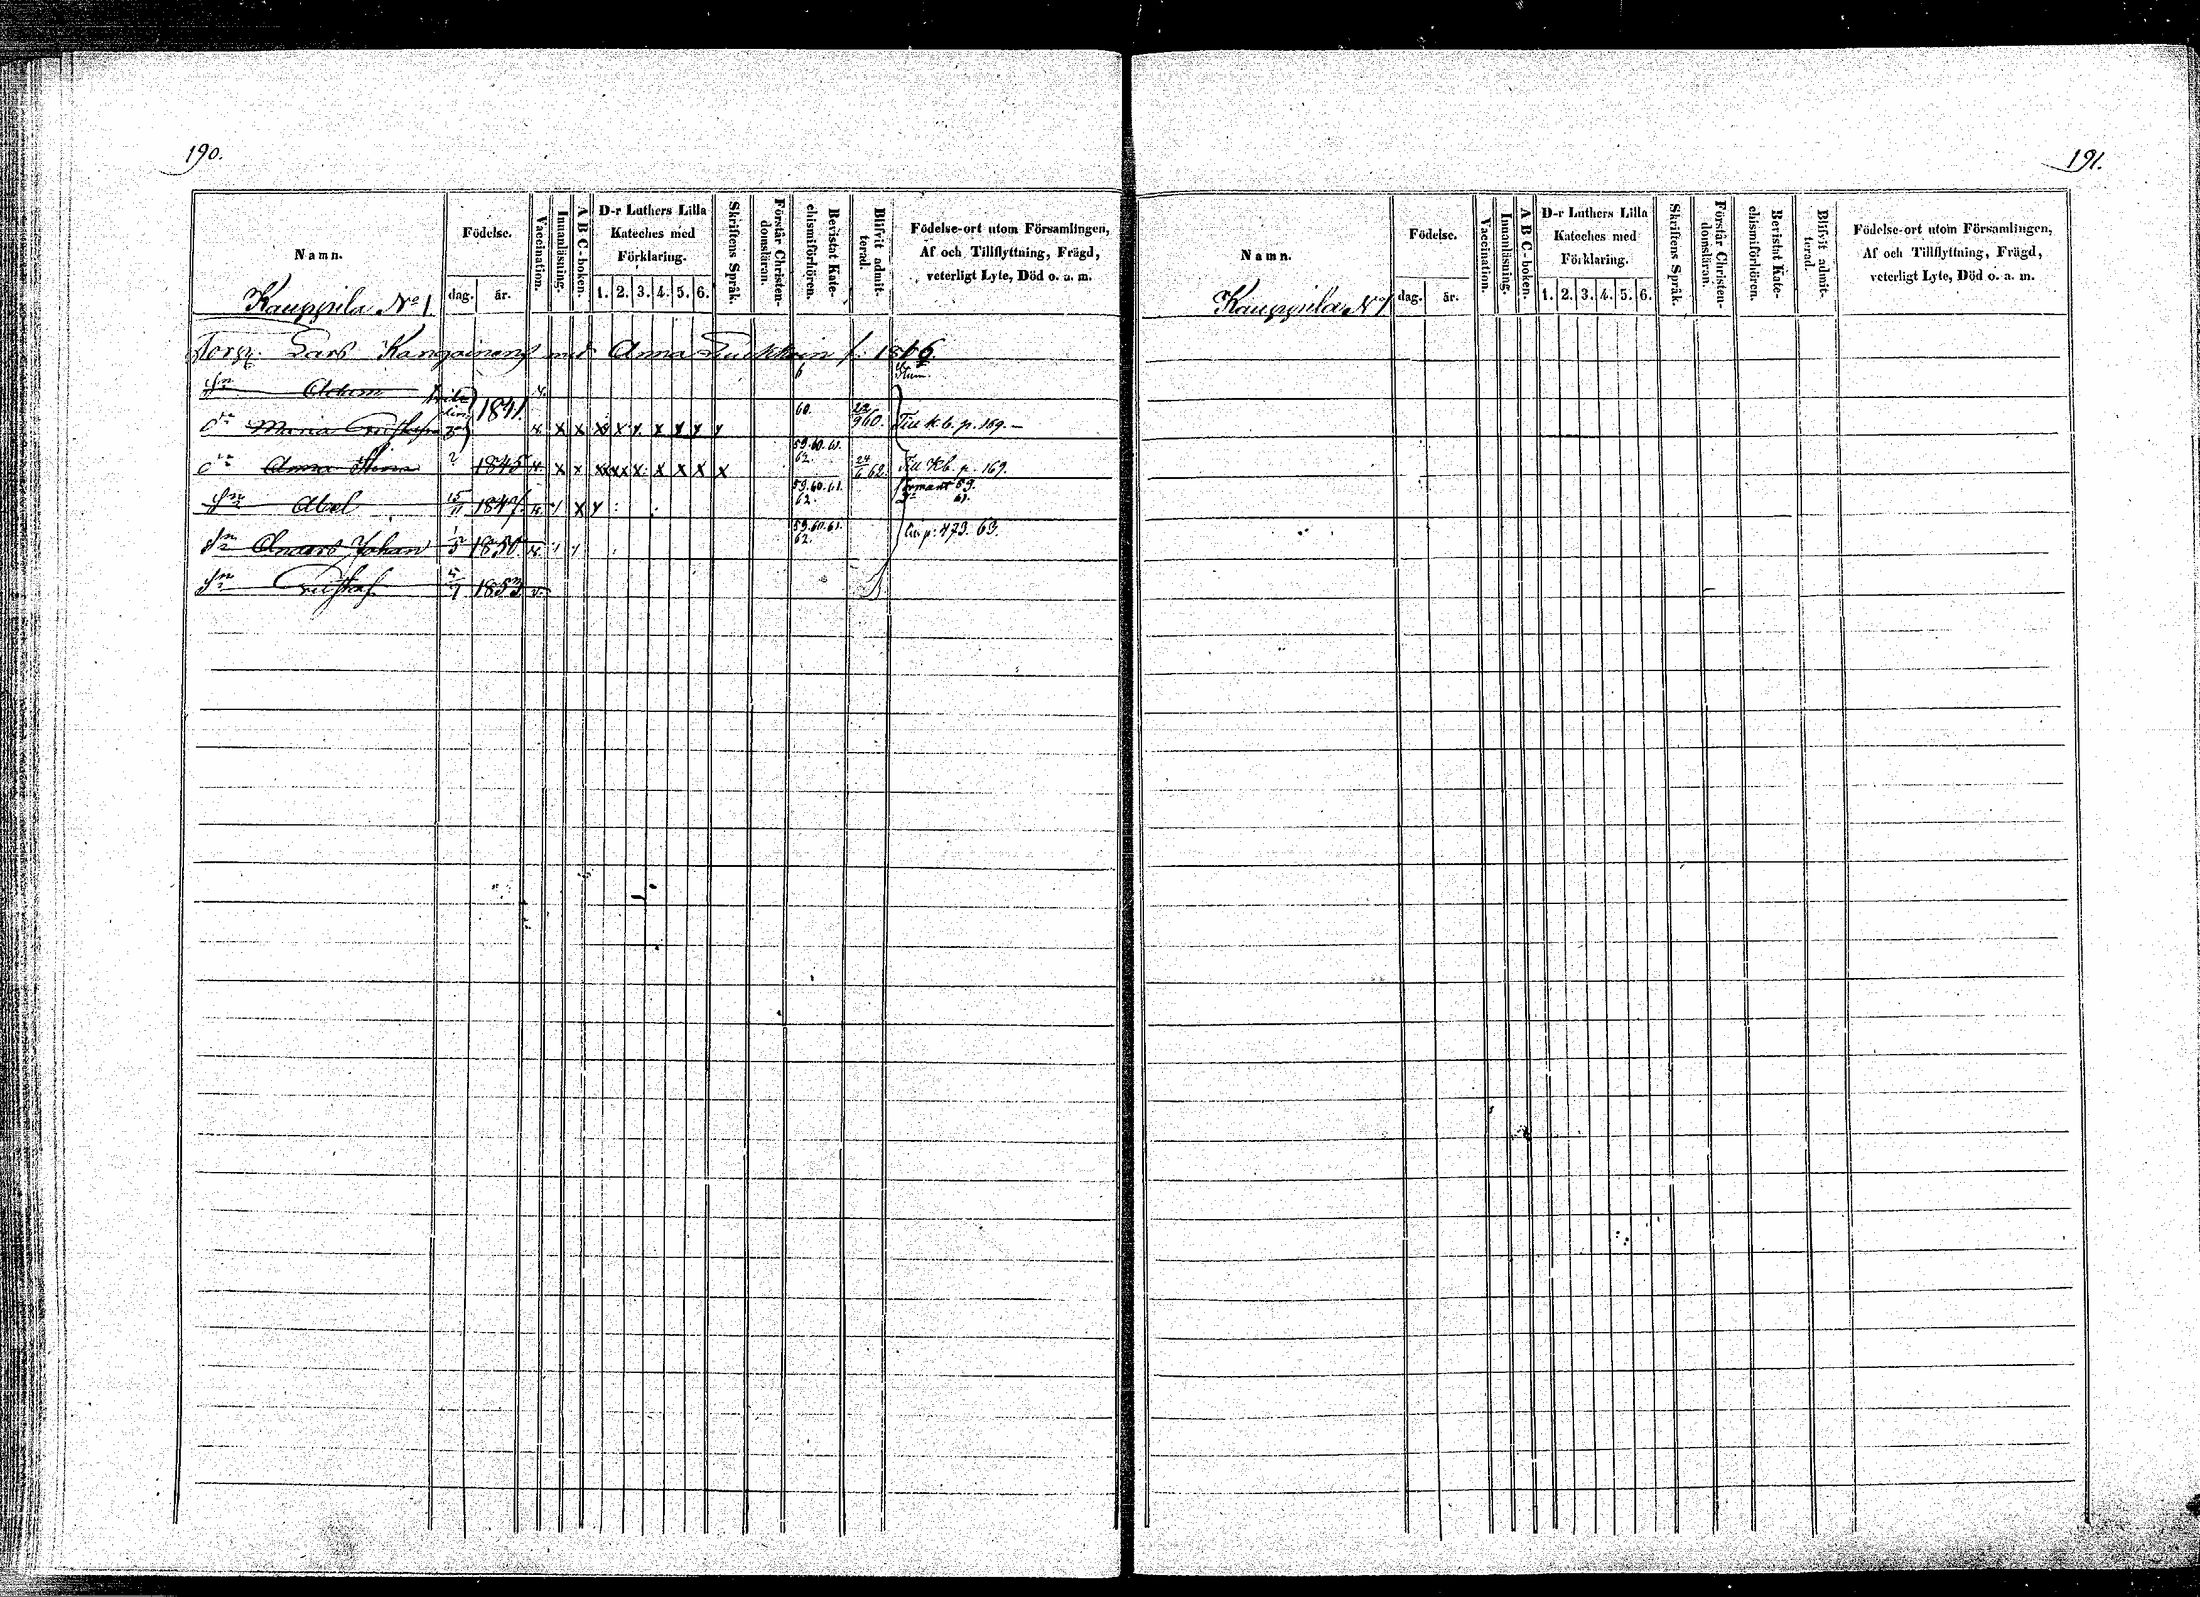 190.
Namn.
Kauppila No 1
Födelse.
dag.
år.
Vaccination.
Innanläsning.
A B C-boken.
D-r Luthers Lilla
Kateches med
Förklaring.
1. 2. 3. 4. 5. 6.
Skriftens Språk.
Förstår Christen-
domsläran.
Bevistat Kate-
chismiförhören.
Blifvit admit-
terad.
Födelse-ort utom Församlingen,
Af och Tillflyttning, Frägd,
veterligt Lyte, Död o. a. m.
Torp. Lars Kangainens med Anna
Sn Adam
1841.
dr Maria x x x x x x x 60. Till k. b. p. 169.
dr Anna Stina 2 1845 x x x x x x x x x 59. 60. 61. 62. 24/6 62. Till Kb. p. 169.
Sn Abel 15/11 1847. x 59. 60. 61. 62. 59. 61.
Sn Anders Johan 1850. 59. 60. 61. 62. p: 473. 63.
Sn Gustaf 1853
191.
Namn.
Kauppila N 1
Födelse.
dag.
år.
Vaccination.
Innanläsning.
A B C-boken.
D-r Luthers Lilla
Kateches med
Förklaring.
1. 2. 3. 4. 5. 6.
Skriftens Språk.
Förstår Christen-
domsläran.
Bevistat Kate-
chismiförhören.
Blifvit admit-
terad.
Födelse-ort utom Församlingen,
Af och Tillflyttning, Frägd,
veterligt Lyte, Död o. a. m.